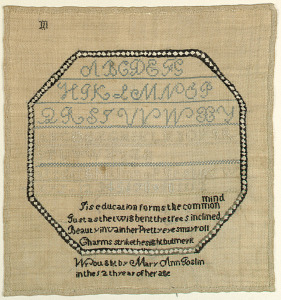 ABCDEFG
HIKLMNOP
QRSTUVWXY
mind
Tis education forms the common
Just as the twig bent the tree's inclined
Beauty in vain her Pretty eyes may roll
Charms strike the sight but merit
Wrought by Mary Ann Goslin
in the 12th year of her age